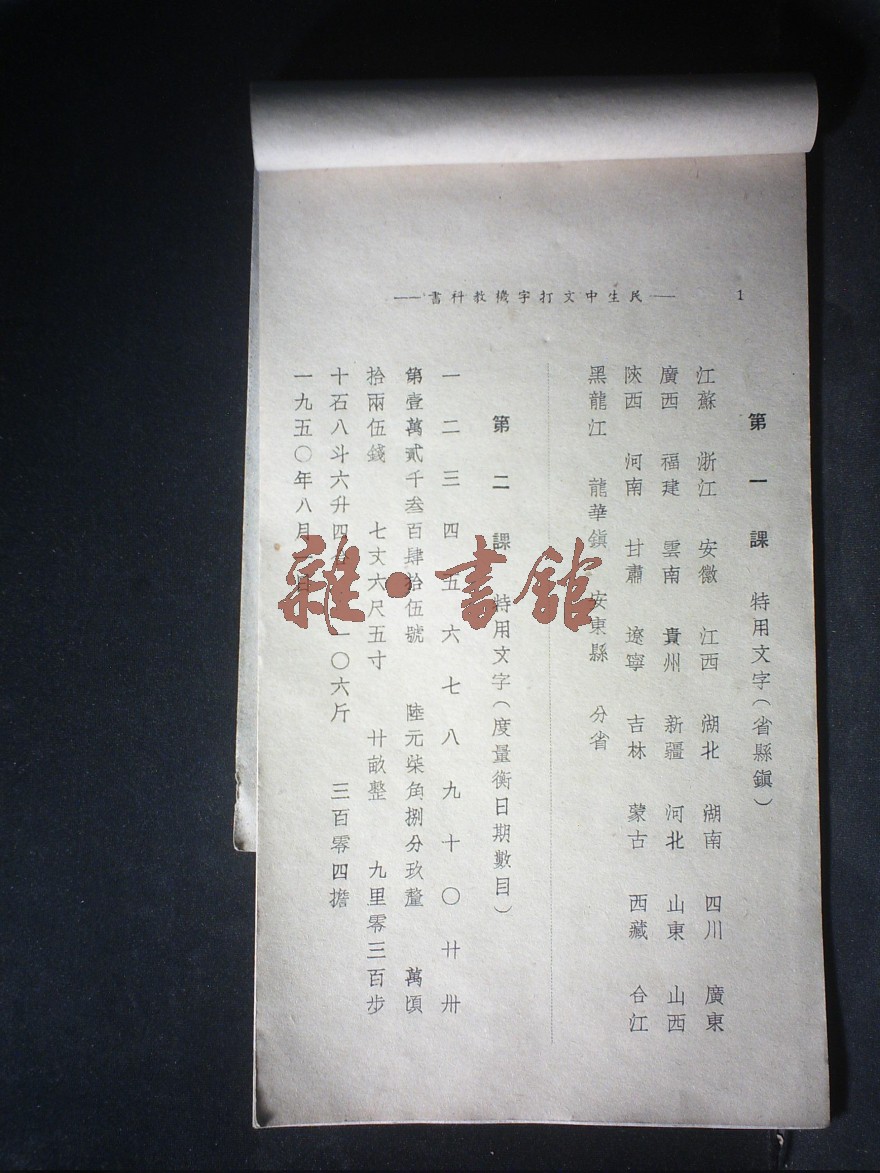 1
民生中文打字機教科書
第一課 特用文字(省縣鎮)
江蘇 浙江 安徽 江西 湖北 湖南 四川 廣東
廣西 福建 雲南 貴州 新疆 河北 山東 山西
陜西 河南 甘肅 遼寧 吉林 蒙古 西藏 合江
黑龍江 龍華鎮 安東縣 分省
第二課 特用文字(度量衡日期數目)
一二三四五六七八九十〇廿卅
第壹萬貳千叁百肆拾伍號 陸元柒角捌分玖釐 萬頃
拾兩伍錢 七丈六尺五寸 廿畝整 九里零三百步
十石八斗六升四合 一〇六斤 三百零四擔
一九五〇年八月一日
雜·書館